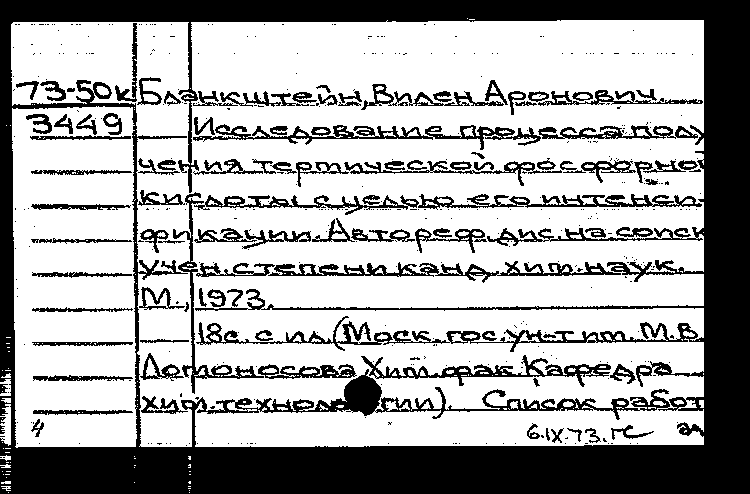 73-50к Бланкштейн, Вилен Аронович.
3449 Исследование процесса полу
чения термической фосфорной
кислоты с целью его интенси-
фикации. Автореф. дис. на соиск
учен. степени канд. хим. наук.
М., 1973.
18с. с ил. (Моск. гос. ун-т им. М.В.
Ломоносова. Хим. фак. Кафедра
хим. технологии). Список работ
4 6.IX.73. ГС